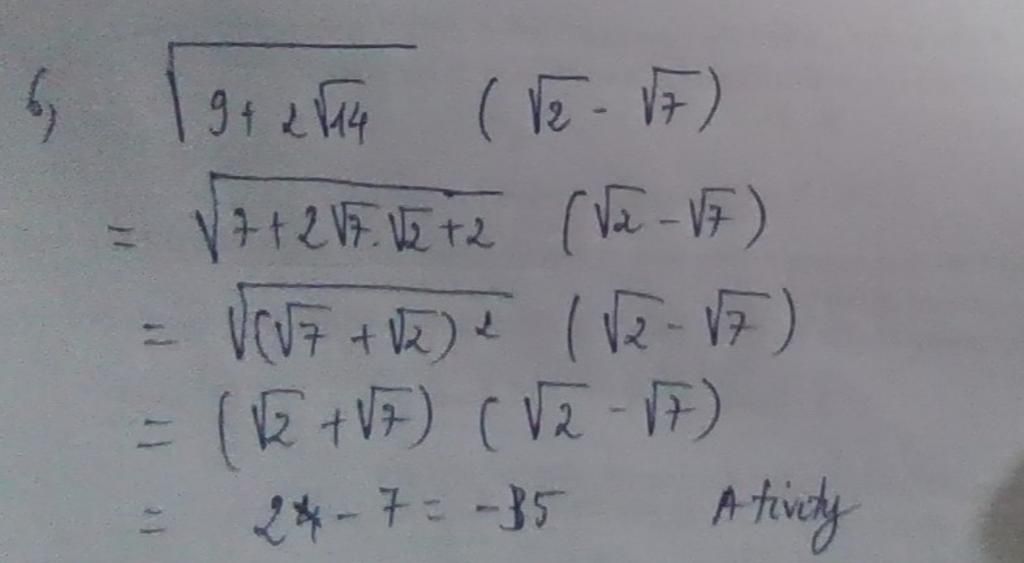 6, √(9 + 2√14) (√2 - √7)
= √(7 + 2√7.√2 + 2) (√2 - √7)
= √((√7 + √2)²) (√2 - √7)
= (√2 + √7) (√2 - √7)
= 2 - 7 = -5 Ativity